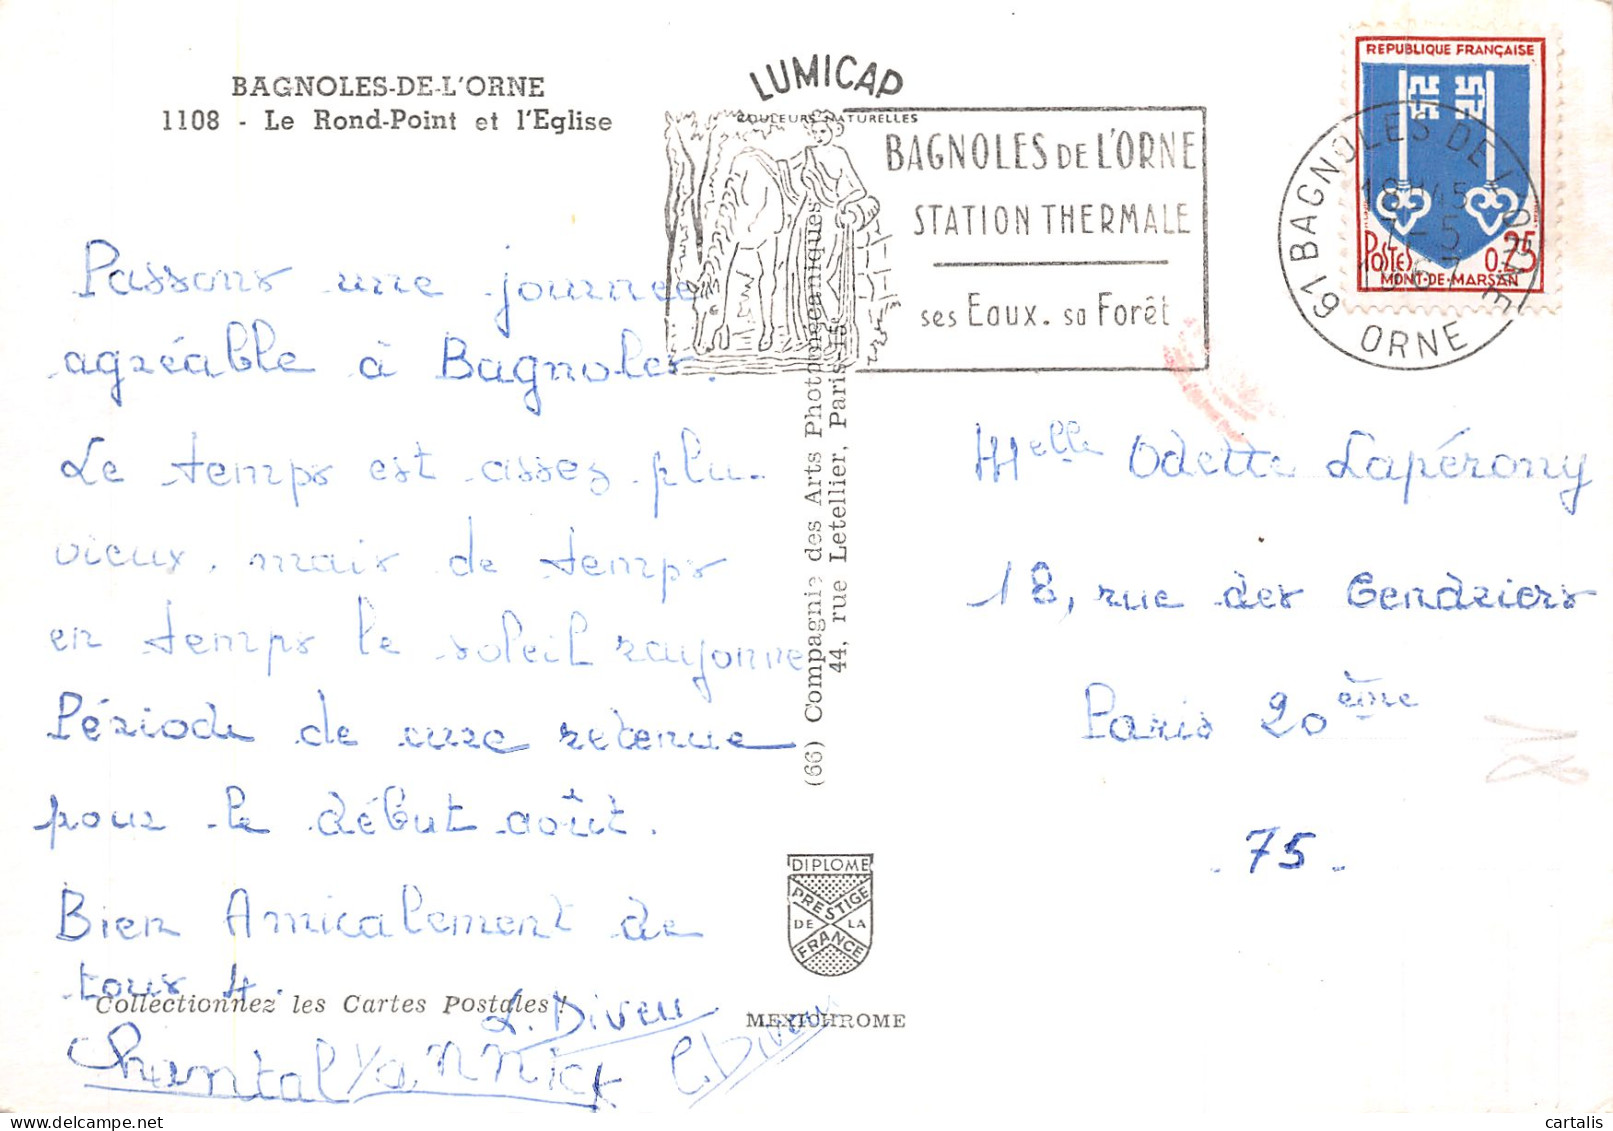 BAGNOLES-DE-L'ORNE
1108 - Le Rond-Point et l'Eglise
LUMICAP
COULEURS NATURELLES
BAGNOLES DE L'ORNE
STATION THERMALE
ses Eaux. sa Forêt
REPUBLIQUE FRANÇAISE
POSTES 0,25
MONT-DE-MARSAN
61 BAGNOLES DE L'ORNE
18H45
7-5
1967
ORNE
Passons une journée
agréable à Bagnoles.
Le temps est assez plu-
vieux, mais de temps
en temps le soleil rayonne
Période de cure retenue
pour le début août.
Bien Amicalement de
tous 4.
L. Diveu
Chantal Yannick C. Diveu
Collectionnez les Cartes Postales !
(66) Compagnie des Arts Photomécaniques
44, rue Letellier, Paris-15e
DIPLOME
PRESTIGE
DE LA
FRANCE
MEXICHROME
Melle Odette Lapérony
18, rue des Cendriers
Paris 20ème
. 75 .
18
cartalis